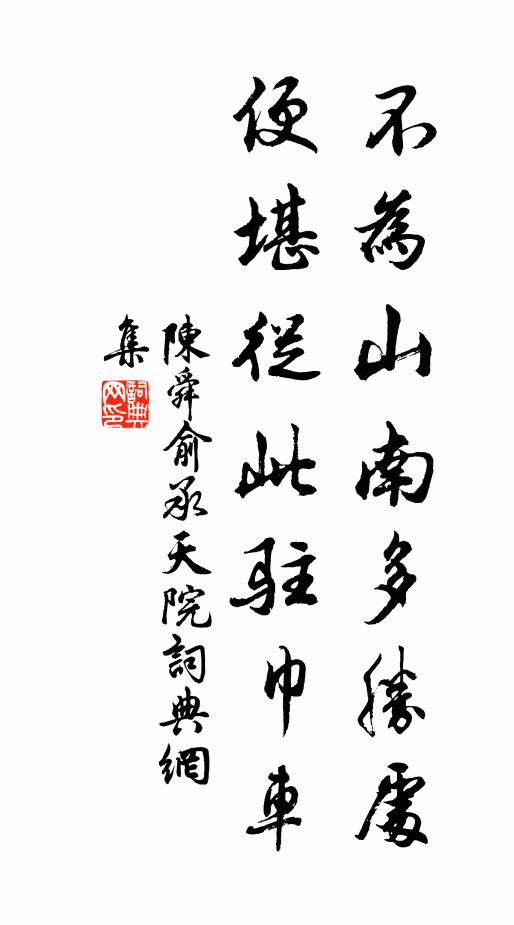 不為山南多勝處
便堪從此駐巾車
陳舜俞承天院詞典網
集
詞典
网印